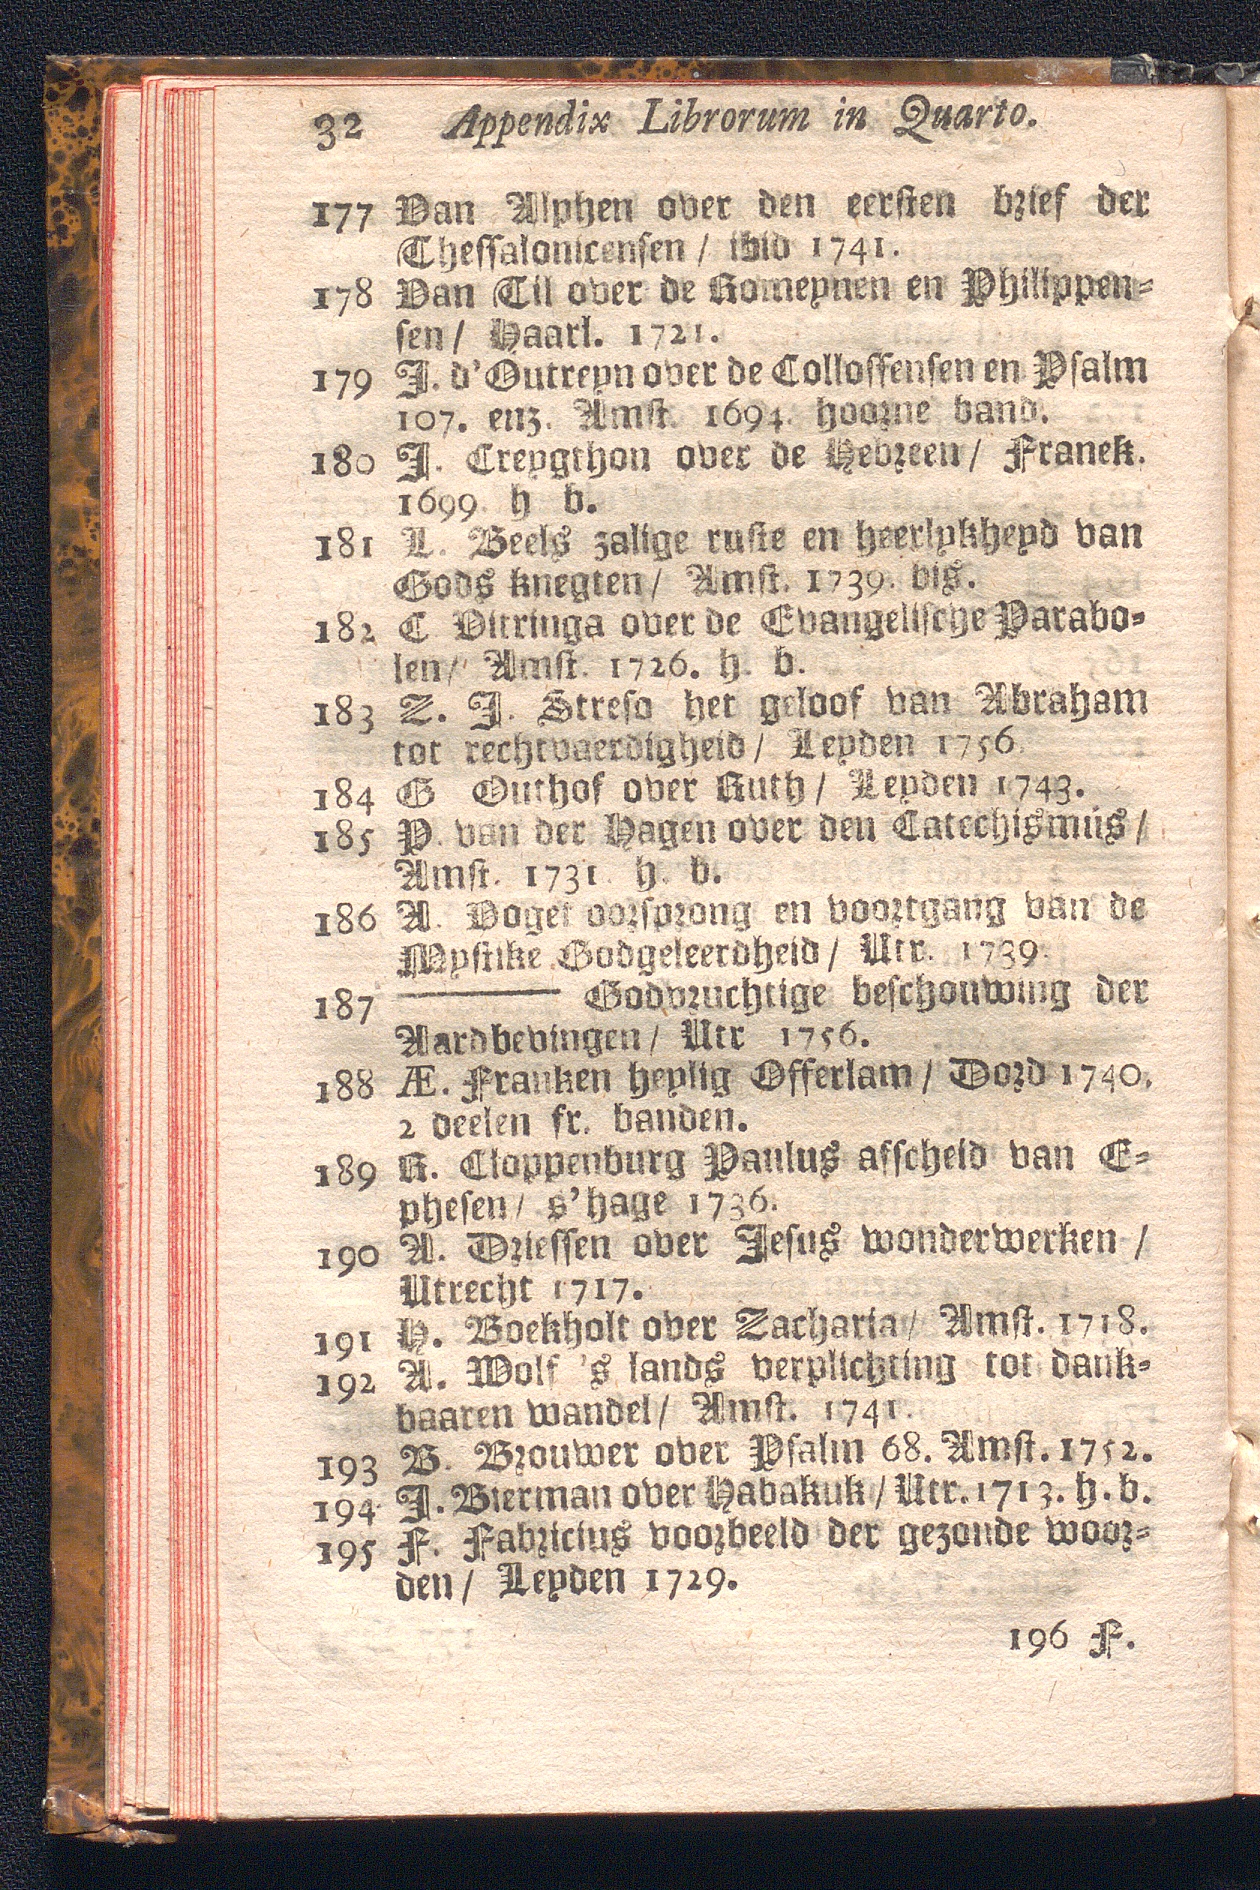 32 Appendix Librorum in Quarto.
177 Van Alphen over den eersten brief der
Thessalonicensen / ibid 1741.
178 Van Til over de Romeynen en Philippen-
sen / Haarl. 1721.
179 J. d'Outreyn over de Collossensen en Psalm
107. enz. Amst. 1694. hoorne band.
180 J. Creygthon over de Hebreen / Franek.
1699. h b.
181 L. Beels zalige ruste en heerlykheyd van
Gods knegten / Amst. 1739. bis.
182 C Vitringa over de Evangelische Parabo-
len / Amst. 1726. h. b.
183 Z. J. Streso het geloof van Abraham
tot rechtvaerdigheid / Leyden 1756.
184 G Outhof over Ruth / Leyden 1743.
185 P. van der Hagen over den Catechismus /
Amst. 1731. h. b.
186 A. Voget oorsprong en voortgang van de
Mystike Godgeleerdheid / Utr. 1739.
187 ——— Godvruchtige beschouwing der
Aardbevingen / Utr 1756.
188 Æ. Franken heylig Offerlam / Dord 1740.
2 deelen fr. banden.
189 R. Cloppenburg Paulus afscheid van E-
phesen / s'hage 1736.
190 A. Driessen over Jesus wonderwerken /
Utrecht 1717.
191 H. Boekholt over Zacharia / Amst. 1718.
192 A. Wolf 's lands verplichting tot dank-
baaren wandel / Amst. 1741.
193 B. Brouwer over Psalm 68. Amst. 1752.
194 J. Bierman over Habakuk / Utr. 1713. h. b.
195 F. Fabricius voorbeeld der gezonde woor-
den / Leyden 1729.
196 F.